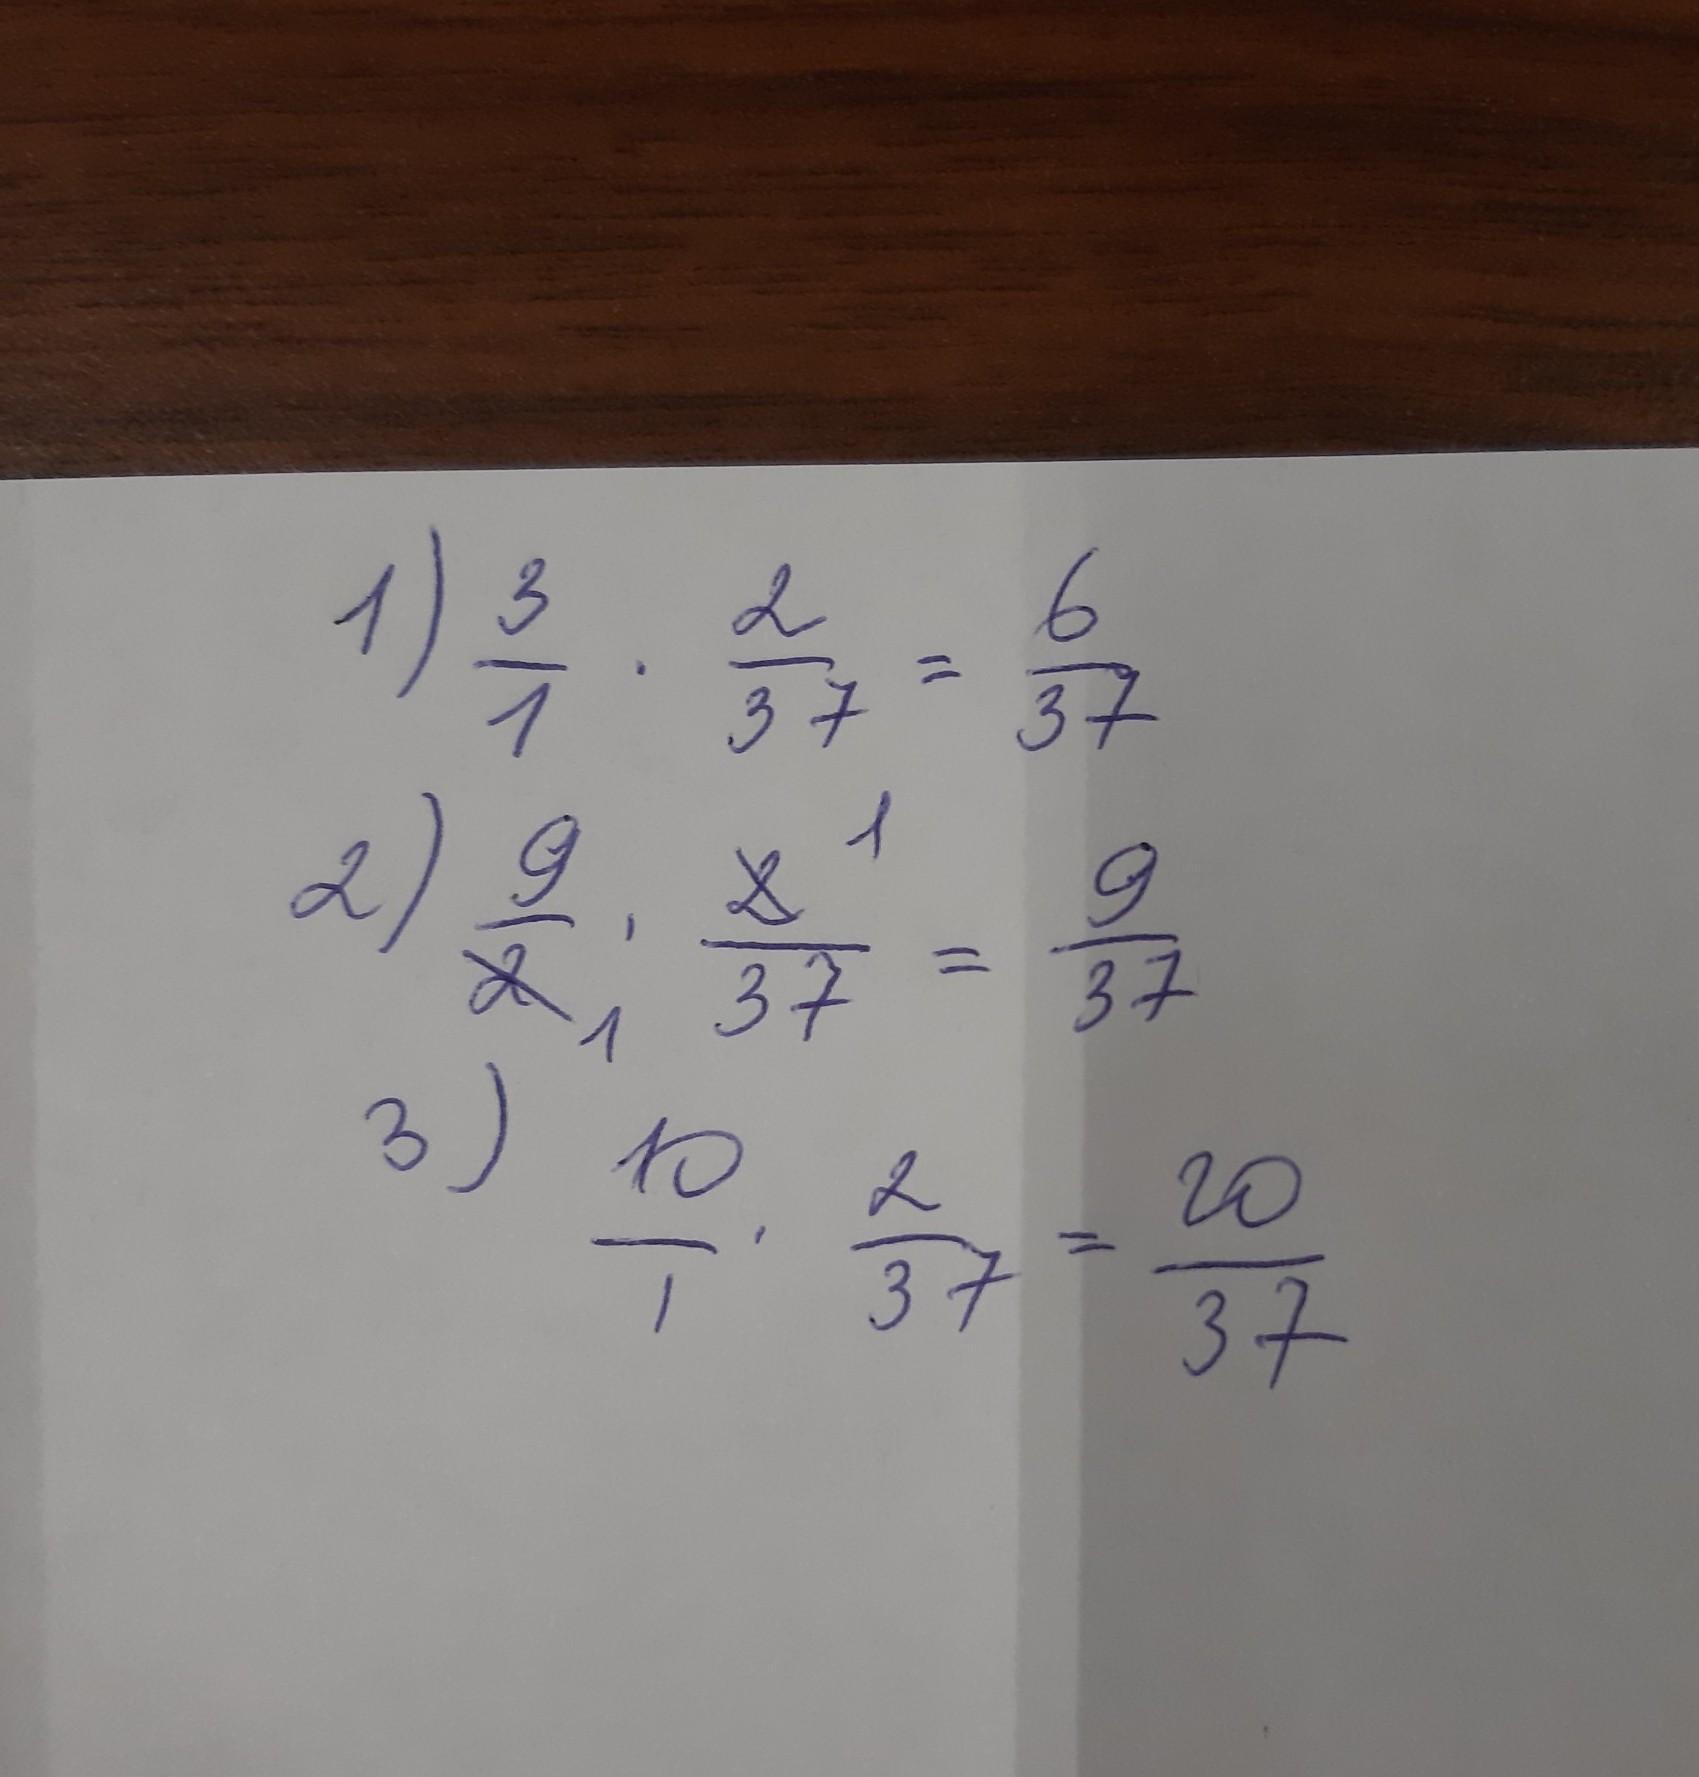 1) 3/1 · 2/37 = 6/37
2) 9/2 1 · 2/37 1 = 9/37
3) 10/1 · 2/37 = 20/37